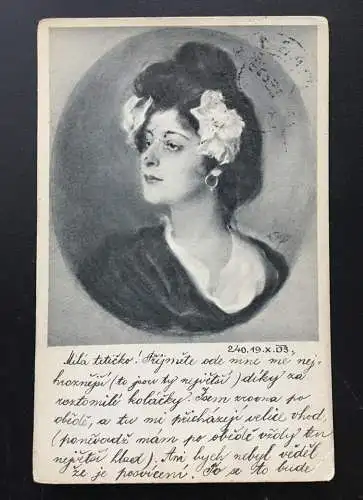 2 40. 19. X. 03,
Milá tetičko! Přijměte ode mne mé nej-
hroznější (to jsou ty největší) díky za
roztomilé koláčky. Jsem zrovna po
obědě, a tu mi přicházejí velice vhod,
(poněvadž mám po obědě vždy ten
největší hlad). Ani bych nebyl věděl
že je posvícení! To se to bude